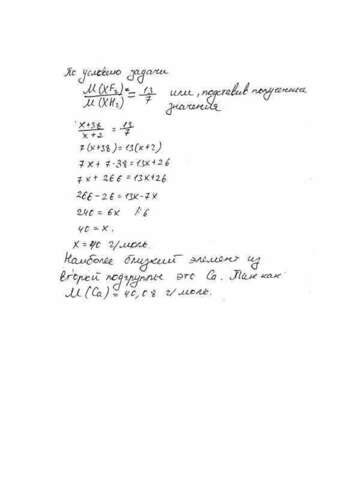 По условию задачи
M(XF₂) / M(XH₂) = 13/7 или, подставив полученные
значения
x+38 / x+2 = 13/7
7(x+38)=13(x+2)
7x + 7·38=13x+26
7x + 266=13x+26
266-26=13x-7x
240=6x /:6
40=x.
x=40 г/моль.
Наиболее близкий элемент из
второй подгруппы это Ca. Так как
M(Ca)=40,08 г/моль.